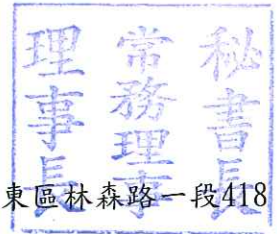 秘書長
常務理事
理事長
東區林森路一段418